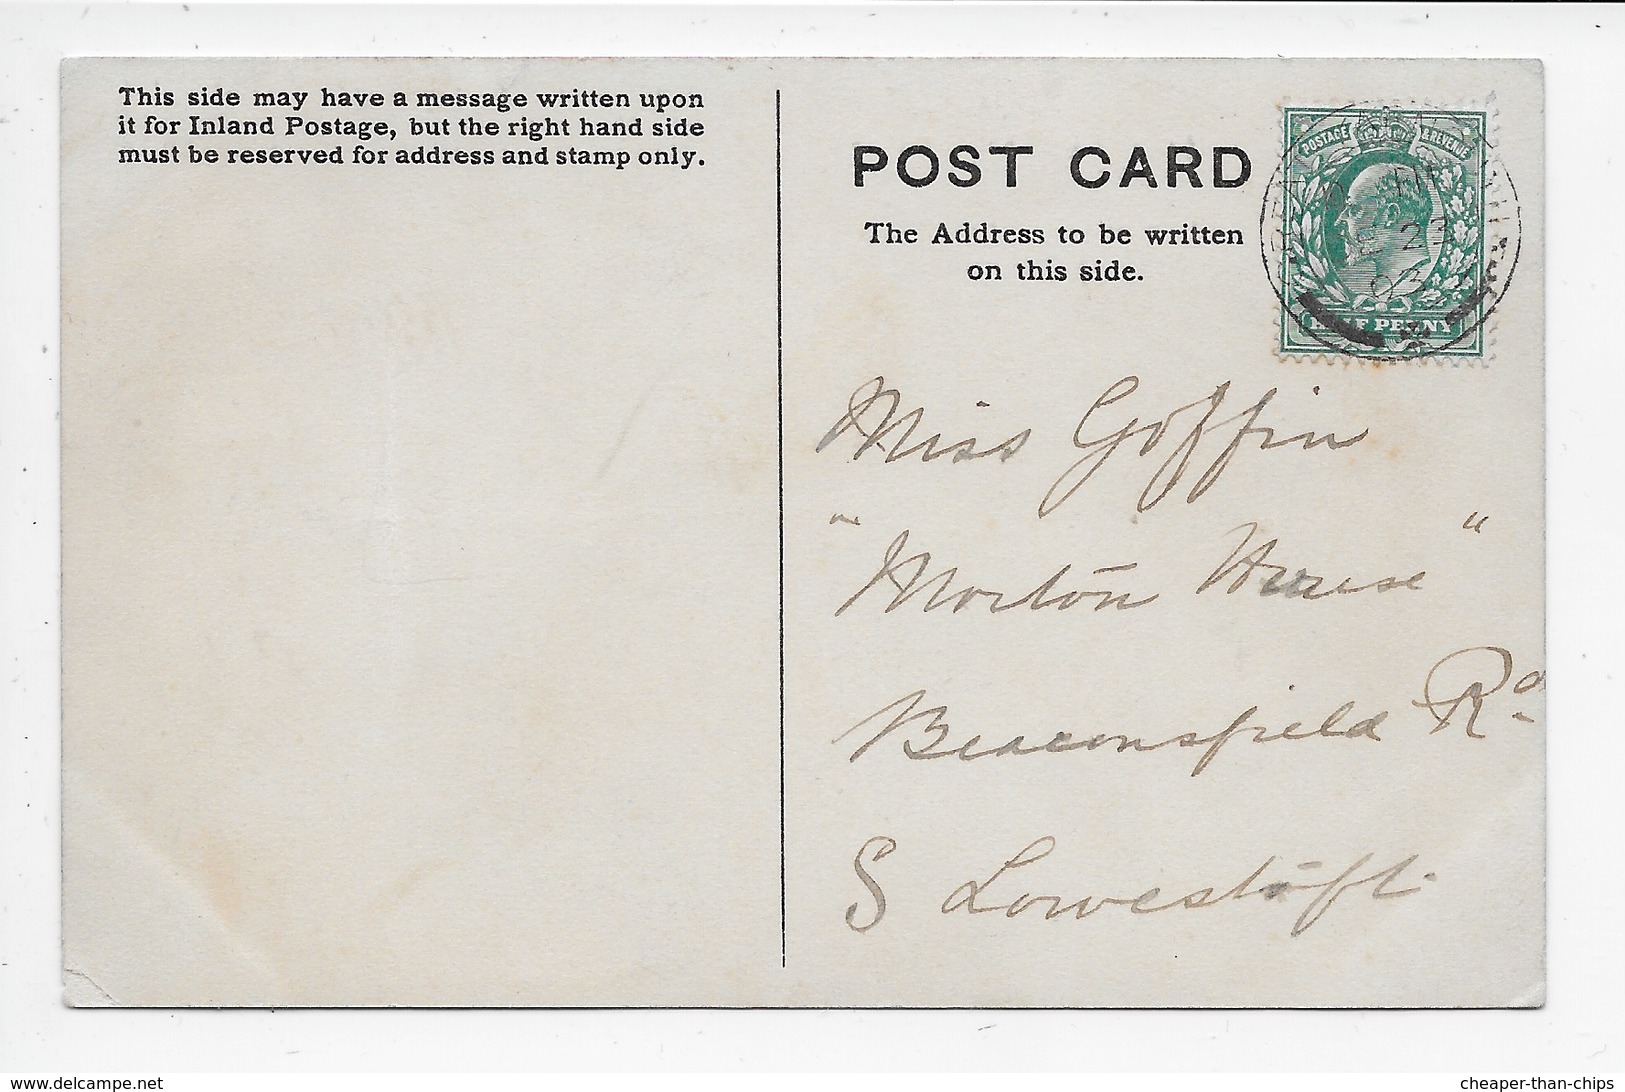 This side may have a message written upon
it for Inland Postage, but the right hand side
must be reserved for address and stamp only.
POST CARD
The Address to be written
on this side.
POSTAGE & REVENUE
HALF PENNY
23
03
Miss Goffin
"Morton House"
Beaconsfield Rd
S Lowestoft.
www.delcampe.net
cheaper-than-chips